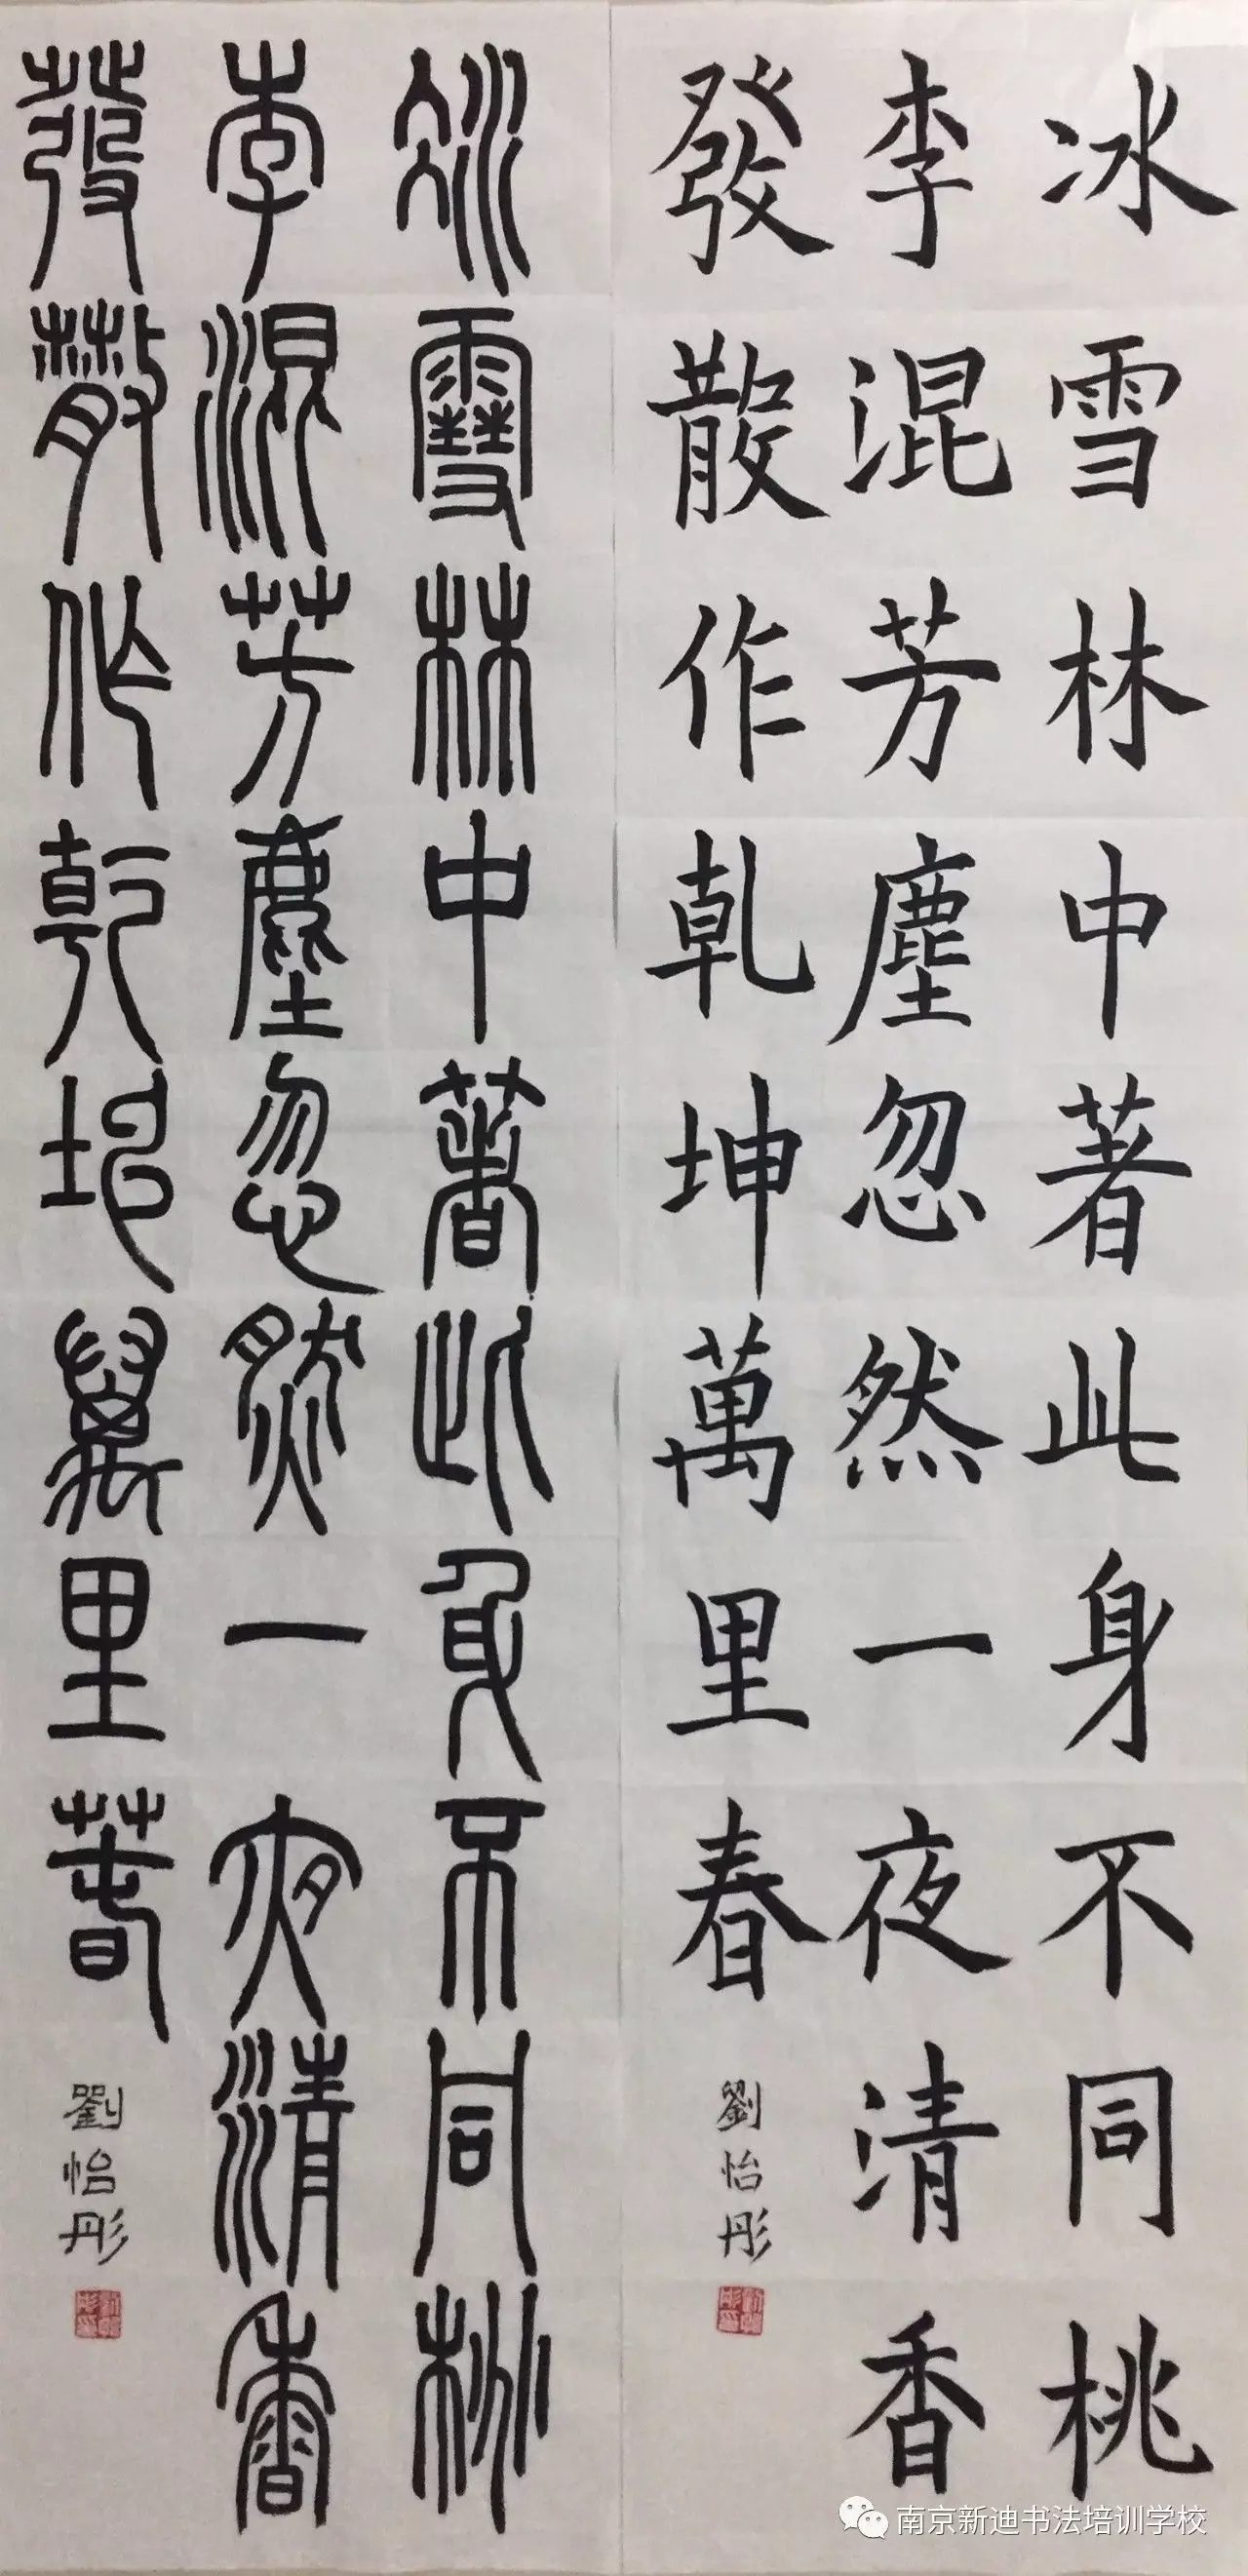 冰雪林中著此身不同桃
李混芳塵忽然一夜清香
發散作乾坤萬里春
劉怡彤
冰雪林中著此身不同桃
李混芳塵忽然一夜清香
發散作乾坤萬里春
劉怡彤
南京新迪书法培训学校